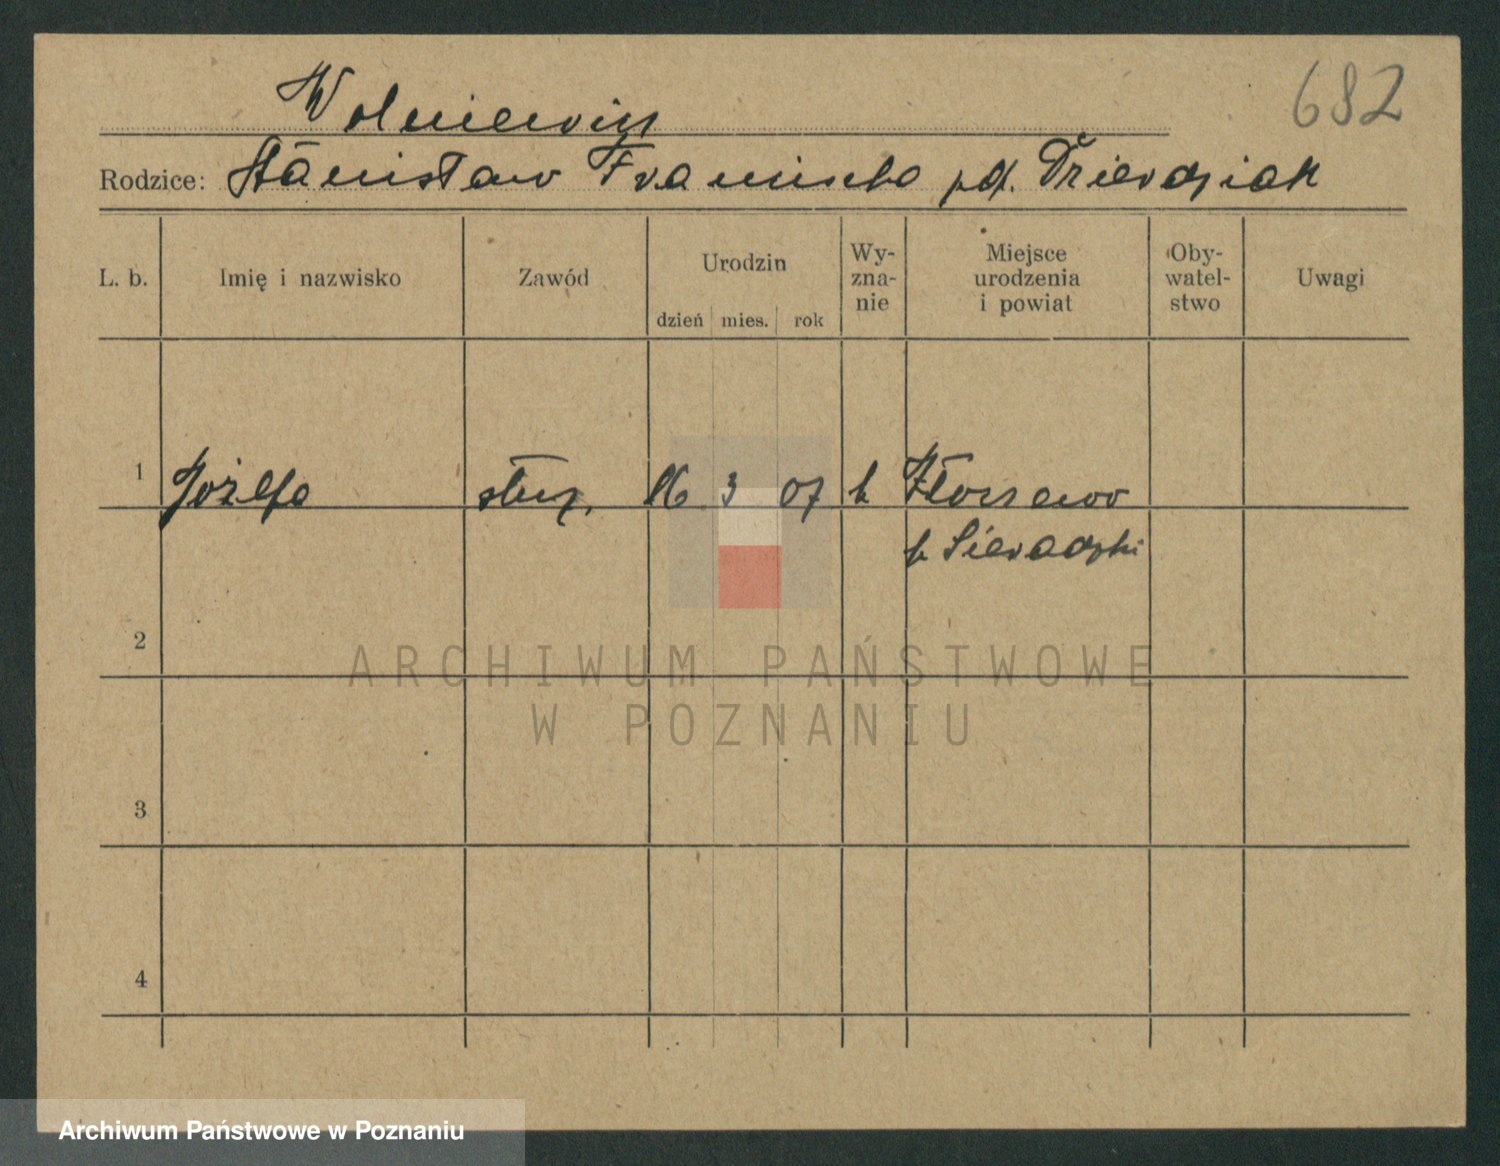 682
Wolniewicz
Rodzice: Stanisław Franciszka pd.
L. b.
Imię i nazwisko
Zawód
Urodzin
dzień mies. rok
Wy-
zna-
nie
Miejsce
urodzenia
i powiat
Oby-
watel-
stwo
Uwagi
1 Józefa służ. 16 3 07 k
p Sieradzki
2
3
4
ARCHIWUM PAŃSTWOWE
W POZNANIU
Archiwum Państwowe w Poznaniu